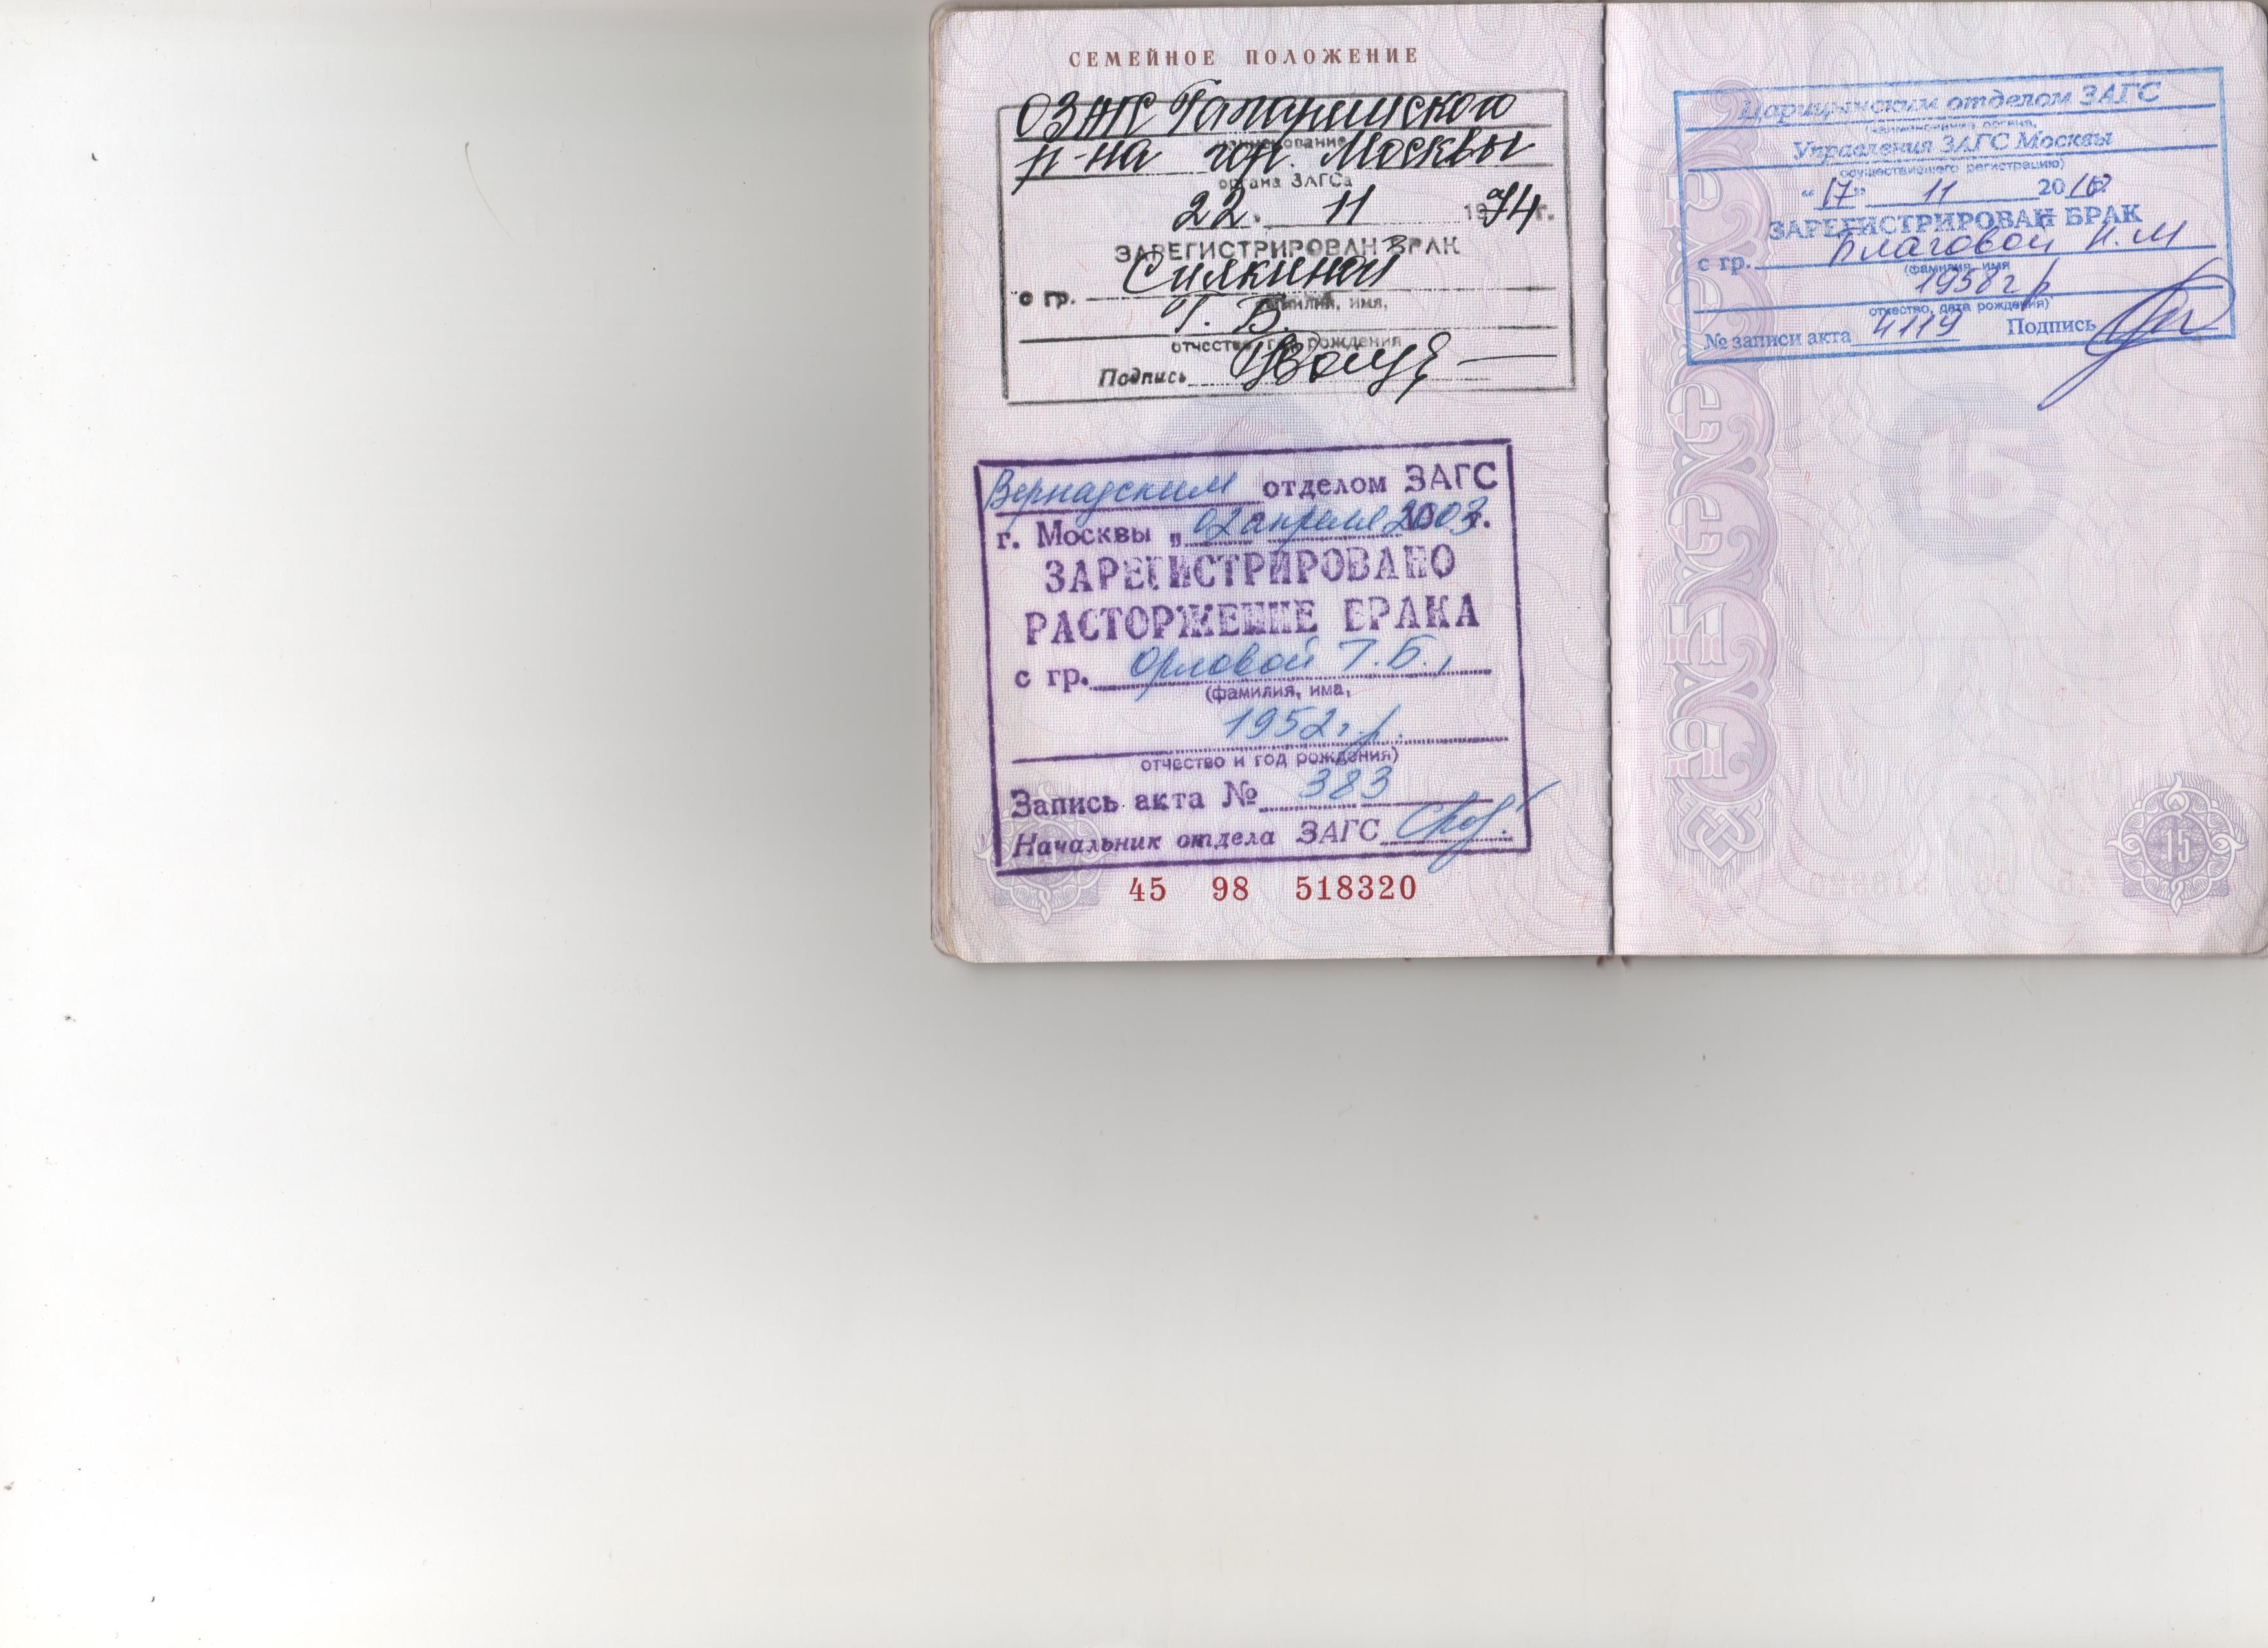 СЕМЕЙНОЕ ПОЛОЖЕНИЕ
ОЗАГС Гагаринского
р-на гор. Москвы
органа ЗАГСа
22. 11 1974 г.
ЗАРЕГИСТРИРОВАН БРАК
с гр. Силкиной
фамилия, имя,
Т. Б.
отчество, год рождения
Подпись
Вернадским отделом ЗАГС
г. Москвы „02 апреля 2003 г.
ЗАРЕГИСТРИРОВАНО
РАСТОРЖЕНИЕ БРАКА
с гр. Орловой Т.Б.,
(фамилия, има,
1952 г.р.
отчество и год рождения)
Запись акта № 383
Начальник отдела ЗАГС
45 98 518320
Царицынским отделом ЗАГС
(наименование органа,
Управления ЗАГС Москвы
осуществившего регистрацию)
“17” 11 20
ЗАРЕГИСТРИРОВАН БРАК
с гр. Благовой Н.М
(фамилия, имя
1958 г р
отчество, дата рождения)
№ записи акта 4119 Подпись
РОССИЯ
15
15